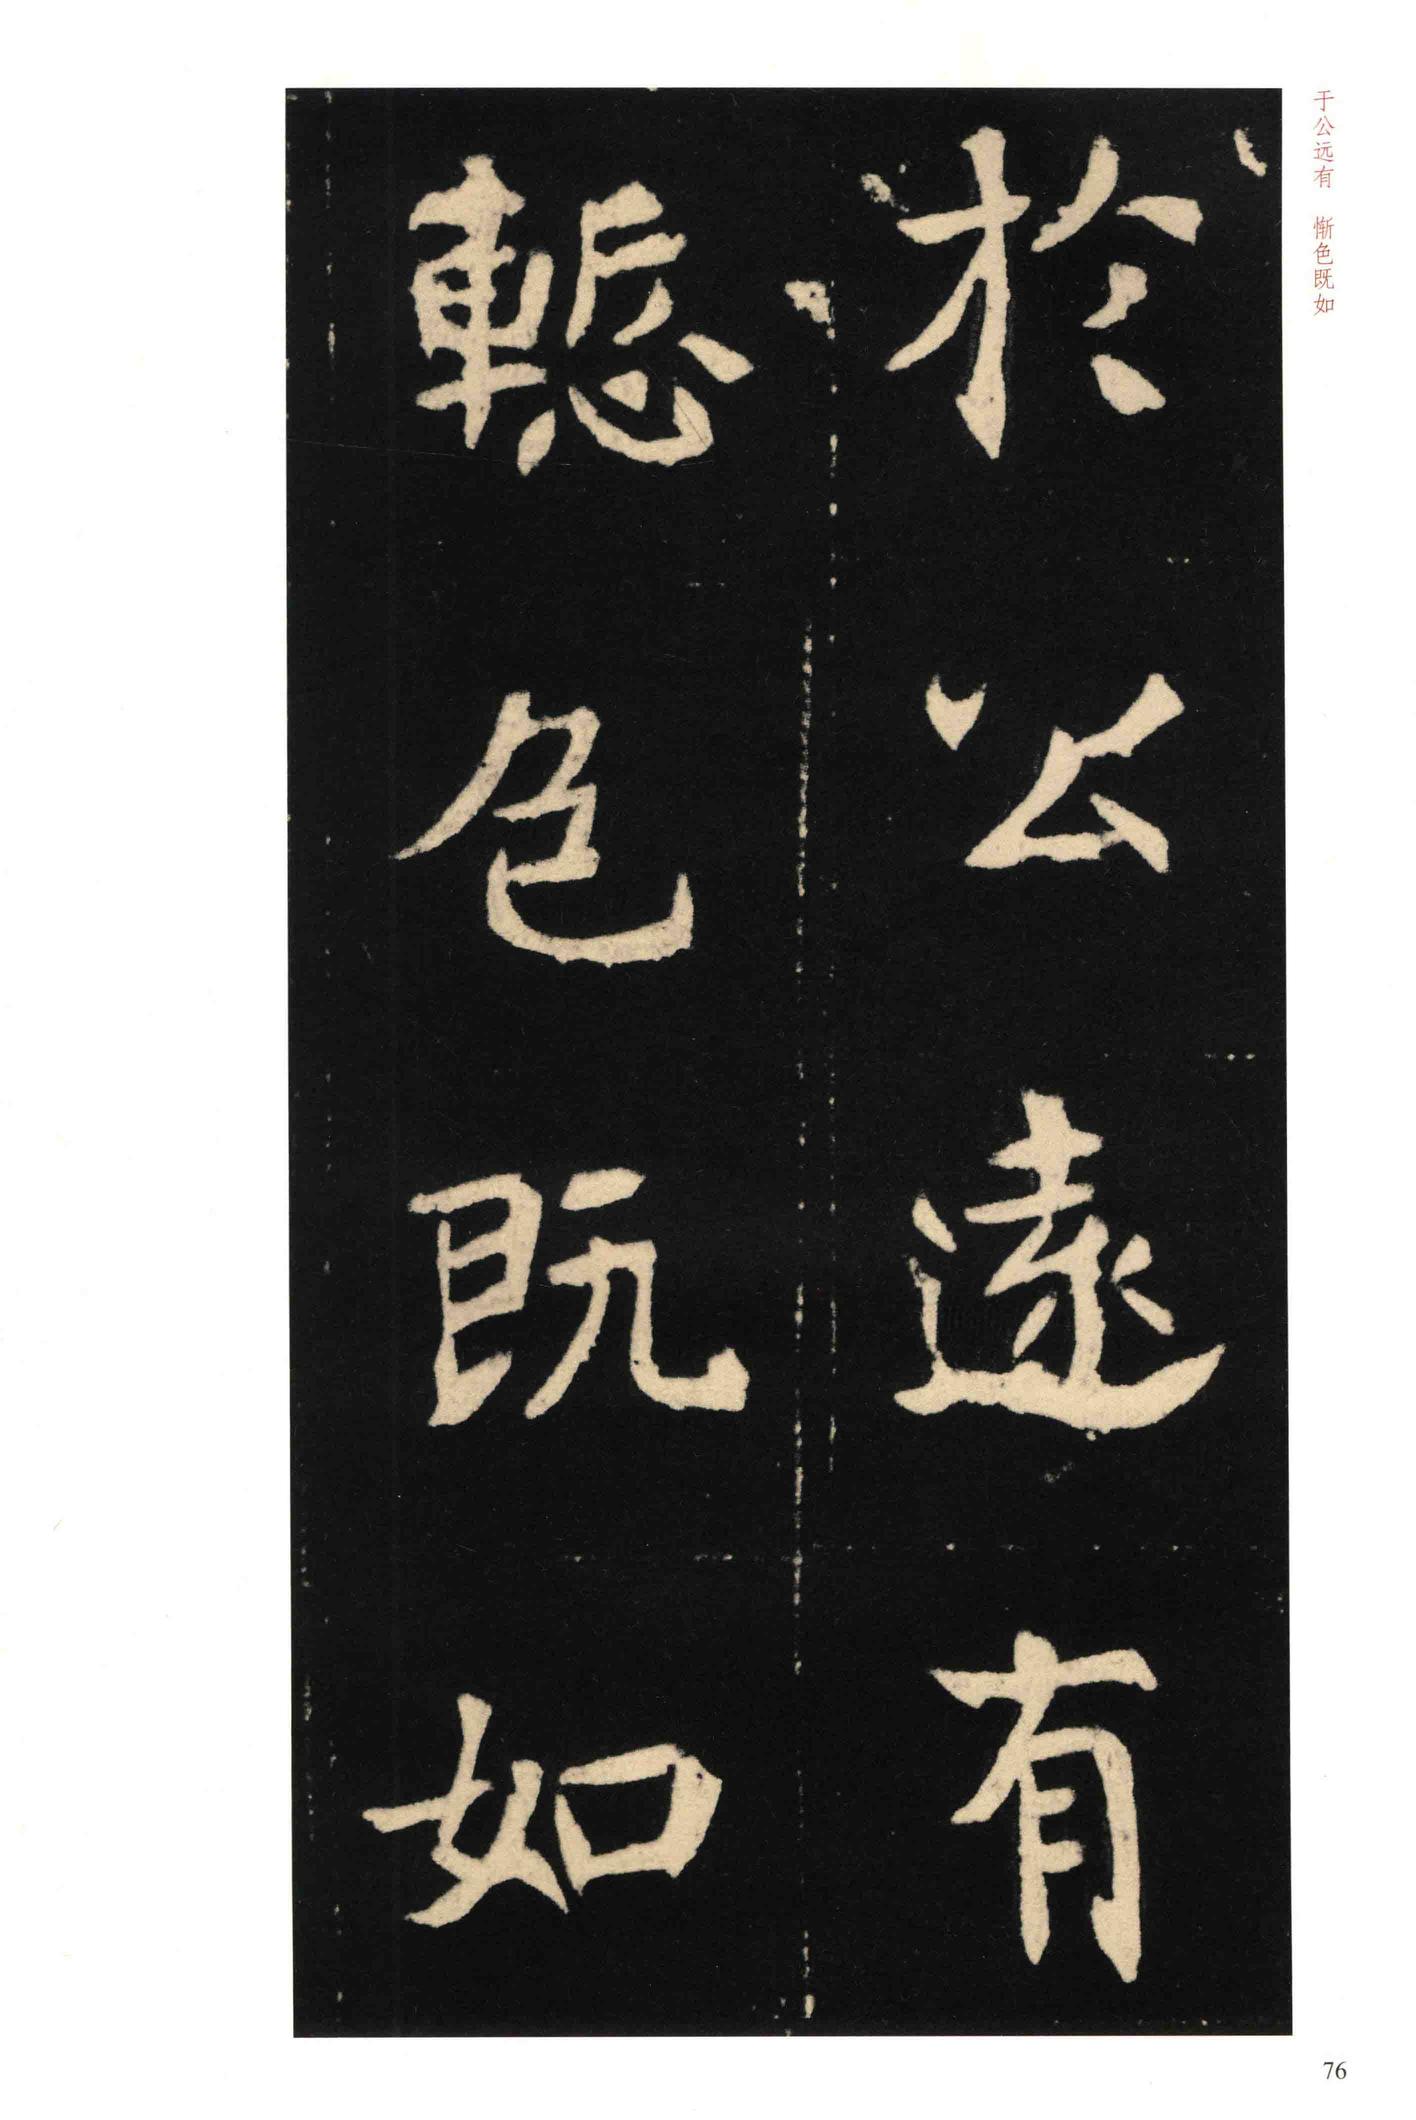 于公远有　惭色既如
於公遠有
慙色既如
76